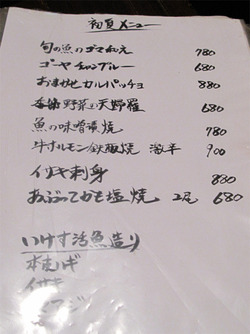 初夏メニュー
旬の魚のゴマあえ 780
ゴーヤチャンプルー 680
おまかせカルパッチョ 880
季節野菜の天婦羅 680
魚の味噌漬焼 780
牛ホルモン鉄板焼 激辛 900
イサキ刺身 880
あぶってかも塩焼 2尾 680
いけす活魚造り
本カワハギ
イサキ
アジ